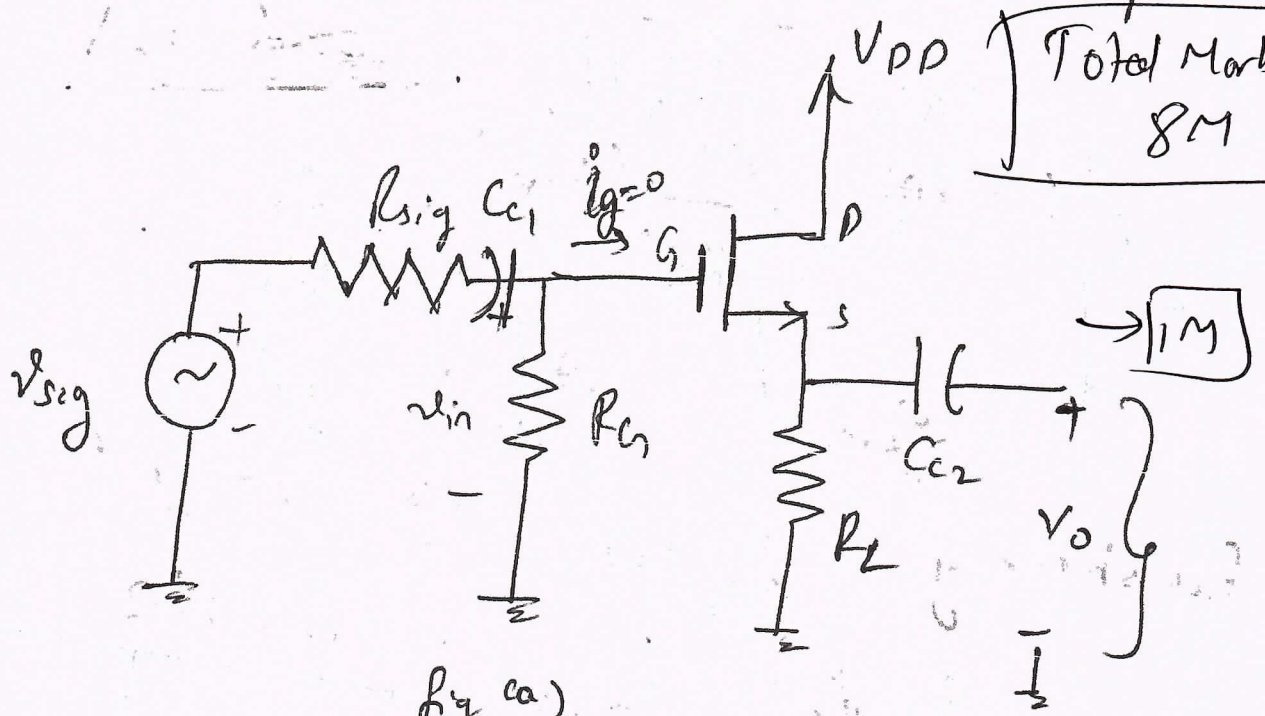 VDD
Total
8M
Rsig Cc1 ig=0
G
D
S
+
vsig
-
+
vin
-
RG
Cc2
+
→ 1M
RL
Vo
-
fig (a)